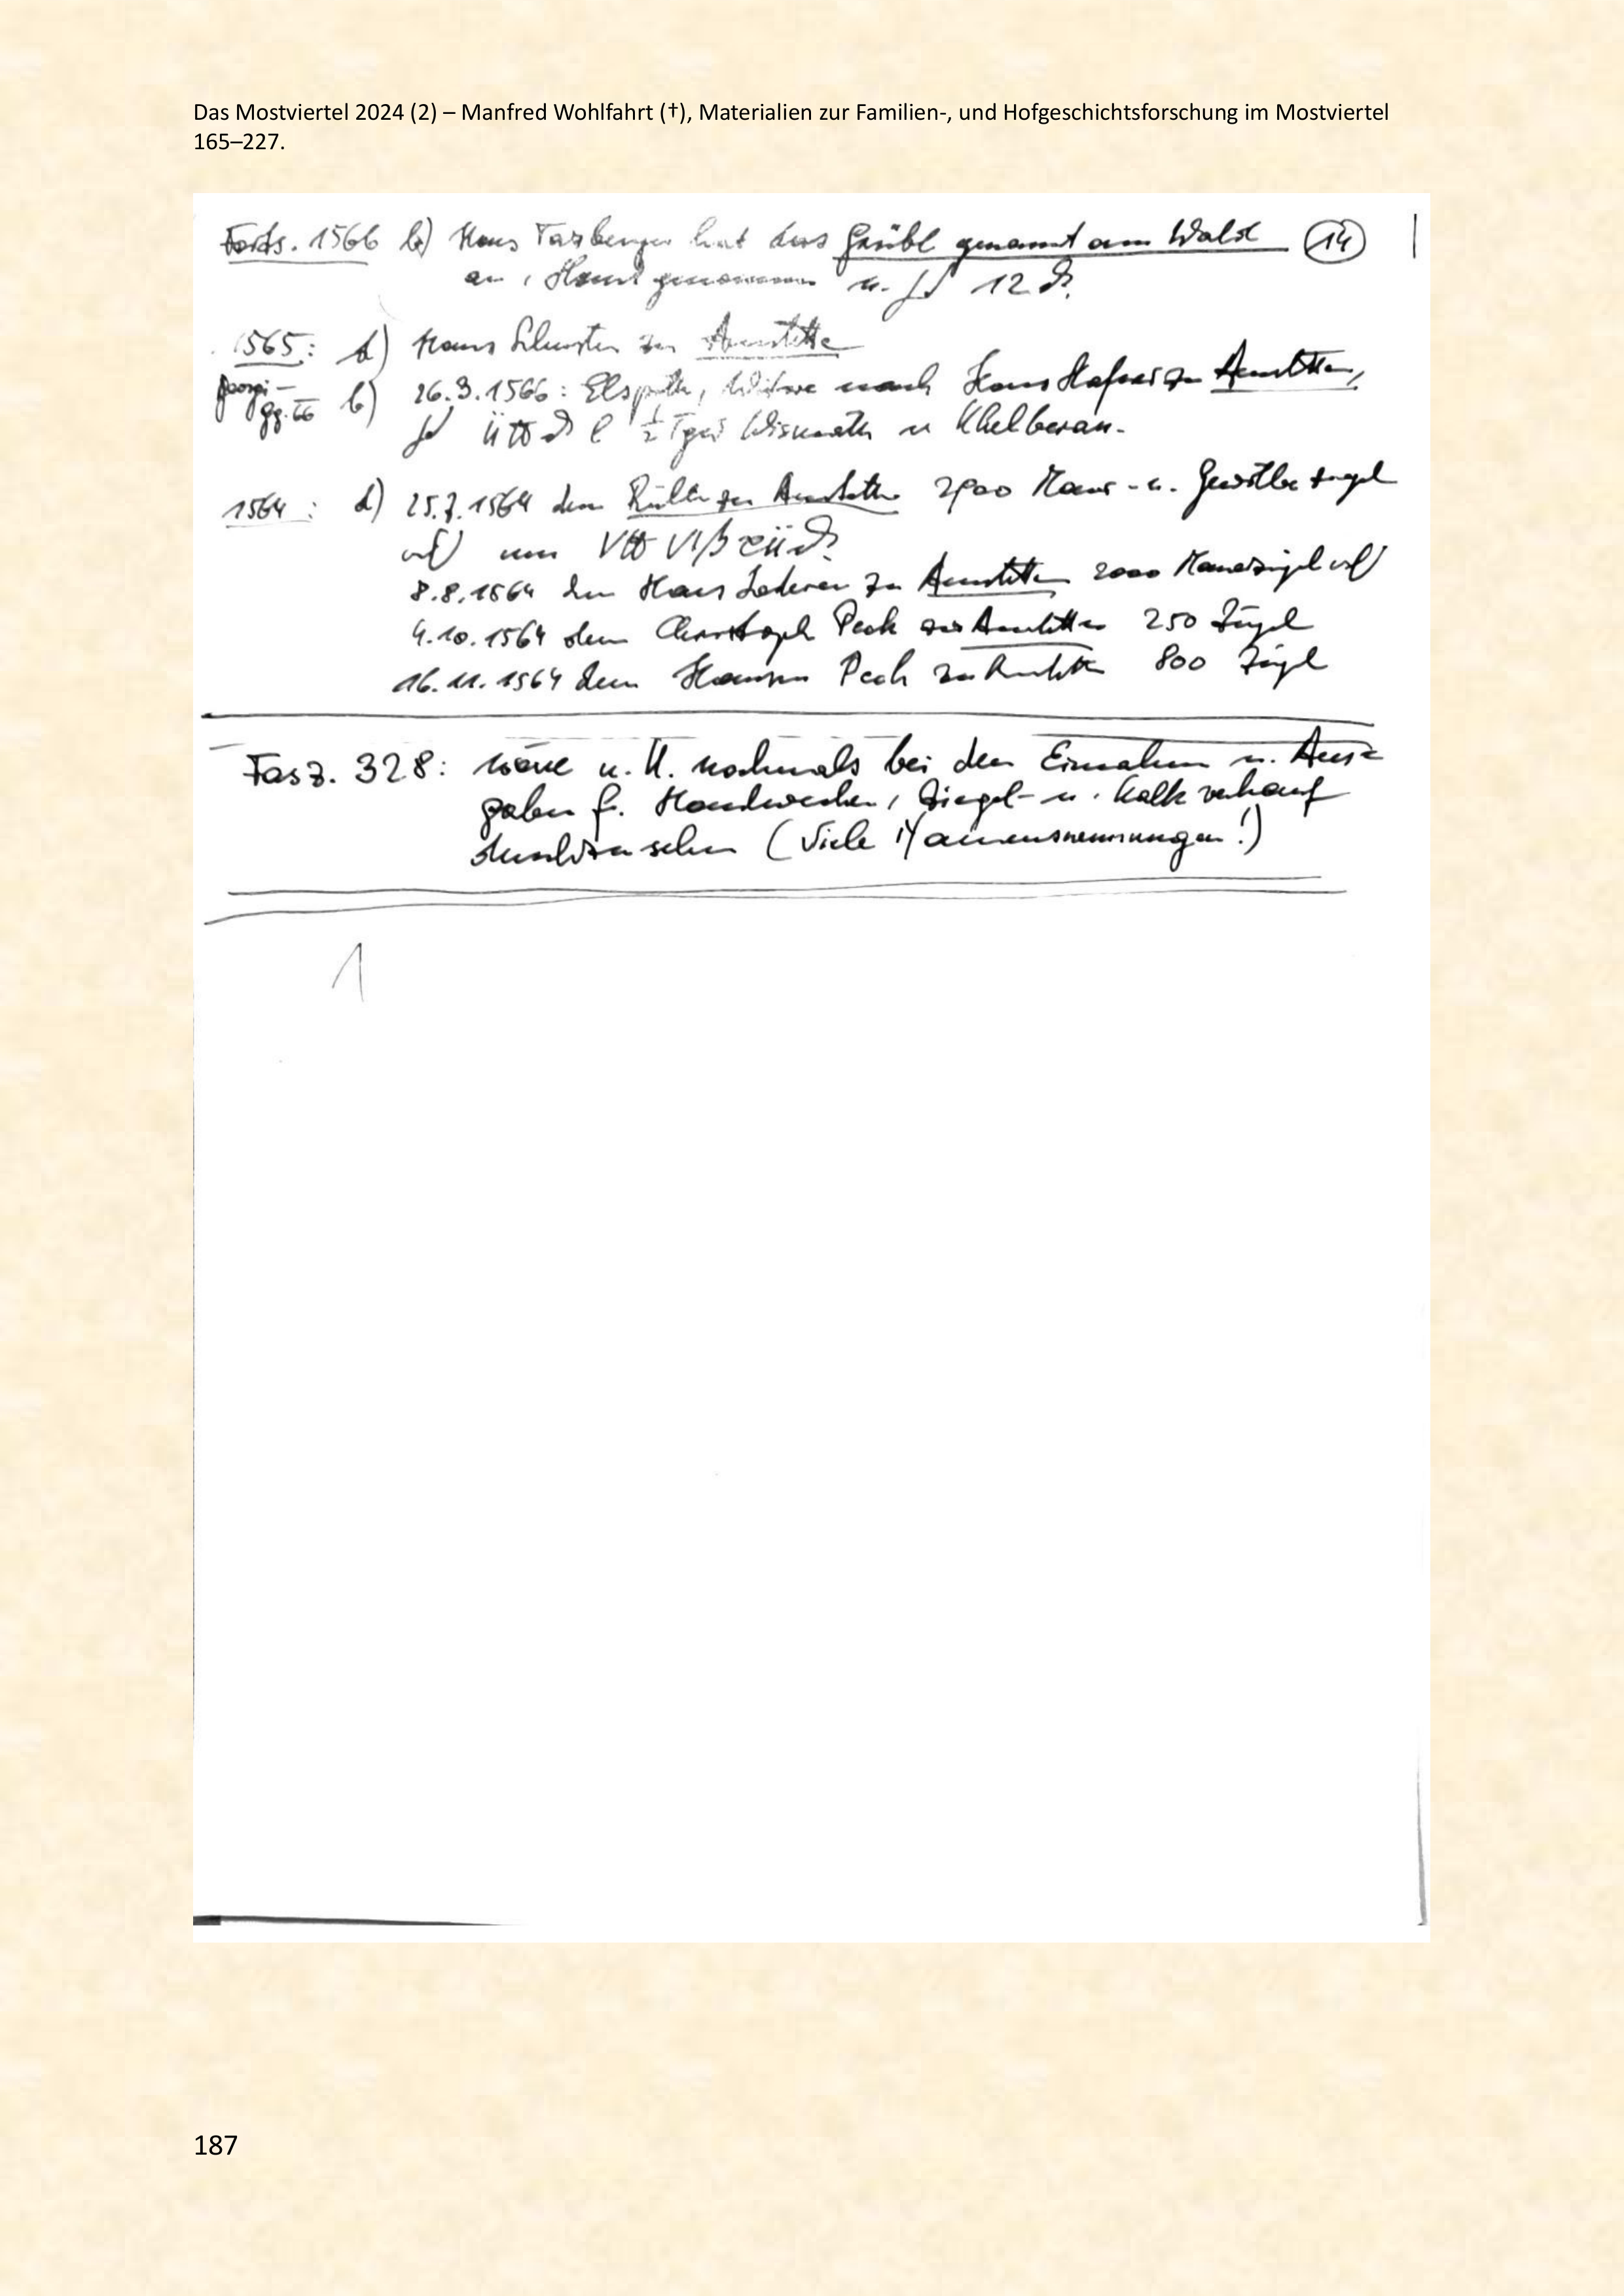 Das Mostviertel 2024 (2) – Manfred Wohlfahrt (†), Materialien zur Familien-, und Hofgeschichtsforschung im Mostviertel
165–227.
Forts. 1566 b) Hans Tazberger hat das Gaübl genannt am Wald 14
an, Hand genommen u. 12 ₰
1565: d) Hans Schuster zu Amstette
Georgi – Gg. 66 b) 26.3.1566: Elspeth, Witwe nach Hans Hafner zu Amstetten,
½ Tgw Wismath
1564: d) 25.7.1564 dem zu Amstetten Maur- u. Gewölbe
um
8.8.1564 dem Hans Lederer zu Amstetten 2000 Mauerzigel
4.10.1564 dem Christoph Peck zu Amstetten 250 Zigel
16.11.1564 dem Hannsen Peck zu Amstetten 800 Zigl
Fasz. 328: wäre u. U. nochmals bei den Einnahmen u. Aus=
gaben f. Handwerker, Ziegel- u. Kalkverkauf
durchzusehen (Viele Namensnennungen!)
1
187